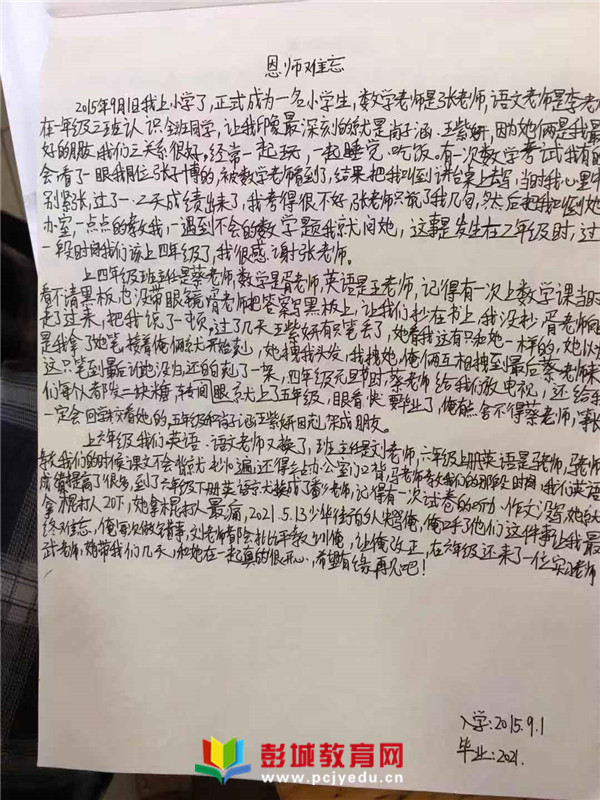 恩师难忘
2015年9月1日我上小学了,正式成为一名小学生,数学老师是张老师,语文老师是李老师
在一年级三班认识全班同学,让我印象最深刻的就是肖子涵、王紫妍,因为她俩是我最
好的朋友,我们三关系很好,经常一起玩,一起睡觉、吃饭。有一次数学考试我有的
会看了一眼我同位张子博的,被数学老师看到了,结果把我叫到讲台桌上去写,当时我心里
别紧张,过了一、2天成绩出来了,我考得很不好,张老师只说了我几句,然后把我叫到她
办室,一点点的教我,一遇到不会的数学题我就去问她,这事是发生在二年级时,过
一段时间我们该上四年级了,我很感谢张老师。
上四年级班主任是蔡老师,数学是胥老师,英语是王老师,记得有一次上数学课当时
看不清黑板,也没带眼镜,胥老师把答案写黑板上,让我们抄在书上,我没抄,胥老师
走了过来,把我说了一顿,过了几天王紫妍有只笔丢了,她看我这有只和她一样的,她以
是我拿了她笔,接着俺俩就开始,她拽我头发,我拽她,俺俩互相拽到最后蔡老师来
这只笔到最后说她没归还的,四年级元旦节时蔡老师给我们放电视,还给
们每个人都发一块糖,转间眼就上了五年级,眼看快要毕业了,俺有点舍不得蔡老师,等长
一定会回学校看她的,五年级和肖子涵王紫妍因成朋友。
上六年级我们英语、语文老师又换了,班主任是刘老师,六年级上册英语是马老师,马老师
教我们的时候课文不会背就抄遍还得去办公室门口背,马老师教我们的那段时间,我们英语
成绩提高了很多,到了六年级下册英语就换成了老师,记得有一次试卷的听力、作文没写,她
拿棍打人20下,她拿棍打人最痛,2021.5.13少华街前的人骂俺,俺呼了他们这件事让我最
终难忘,俺每次做错事,刘老师都会批评教训俺,让俺改正,在六年级还来了一位实习老师
武老师,她带我们几天,和她在一起真的很开心,希望有缘再见吧!
入学:2015.9.1
毕业:2021.
彭城教育网
www.pcjyedu.cn